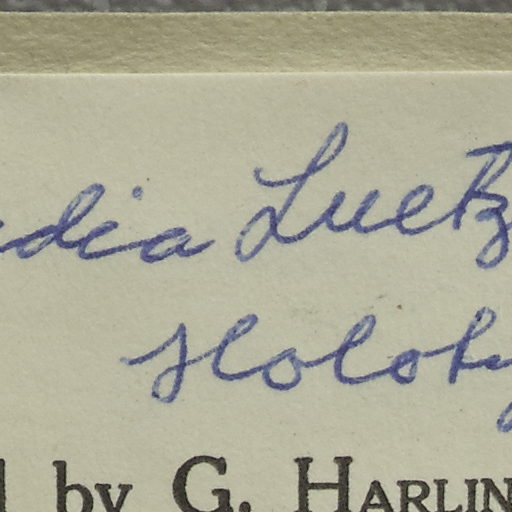 dia Luetz
Holoby
by G. HARLIN